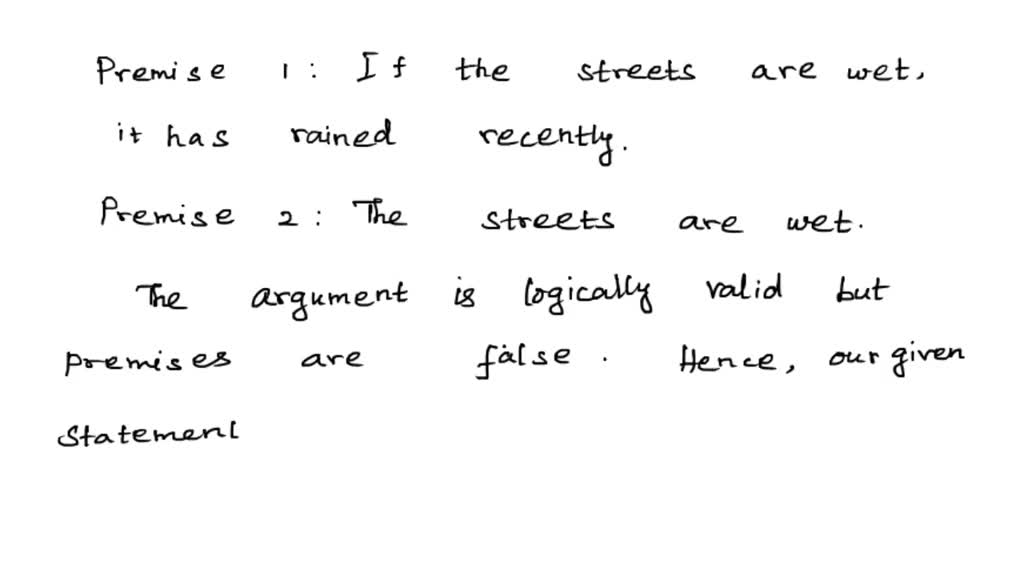 Premise 1 : If the streets are wet,
it has rained recently.
Premise 2 : The streets are wet.
The argument is logically valid but
premises are false. Hence, our given
statement